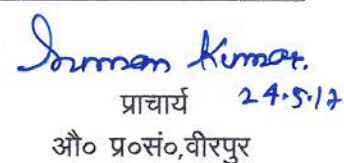 Suman Kumar.
प्राचार्य 24.5.17
औ० प्र०सं०,वीरपुर